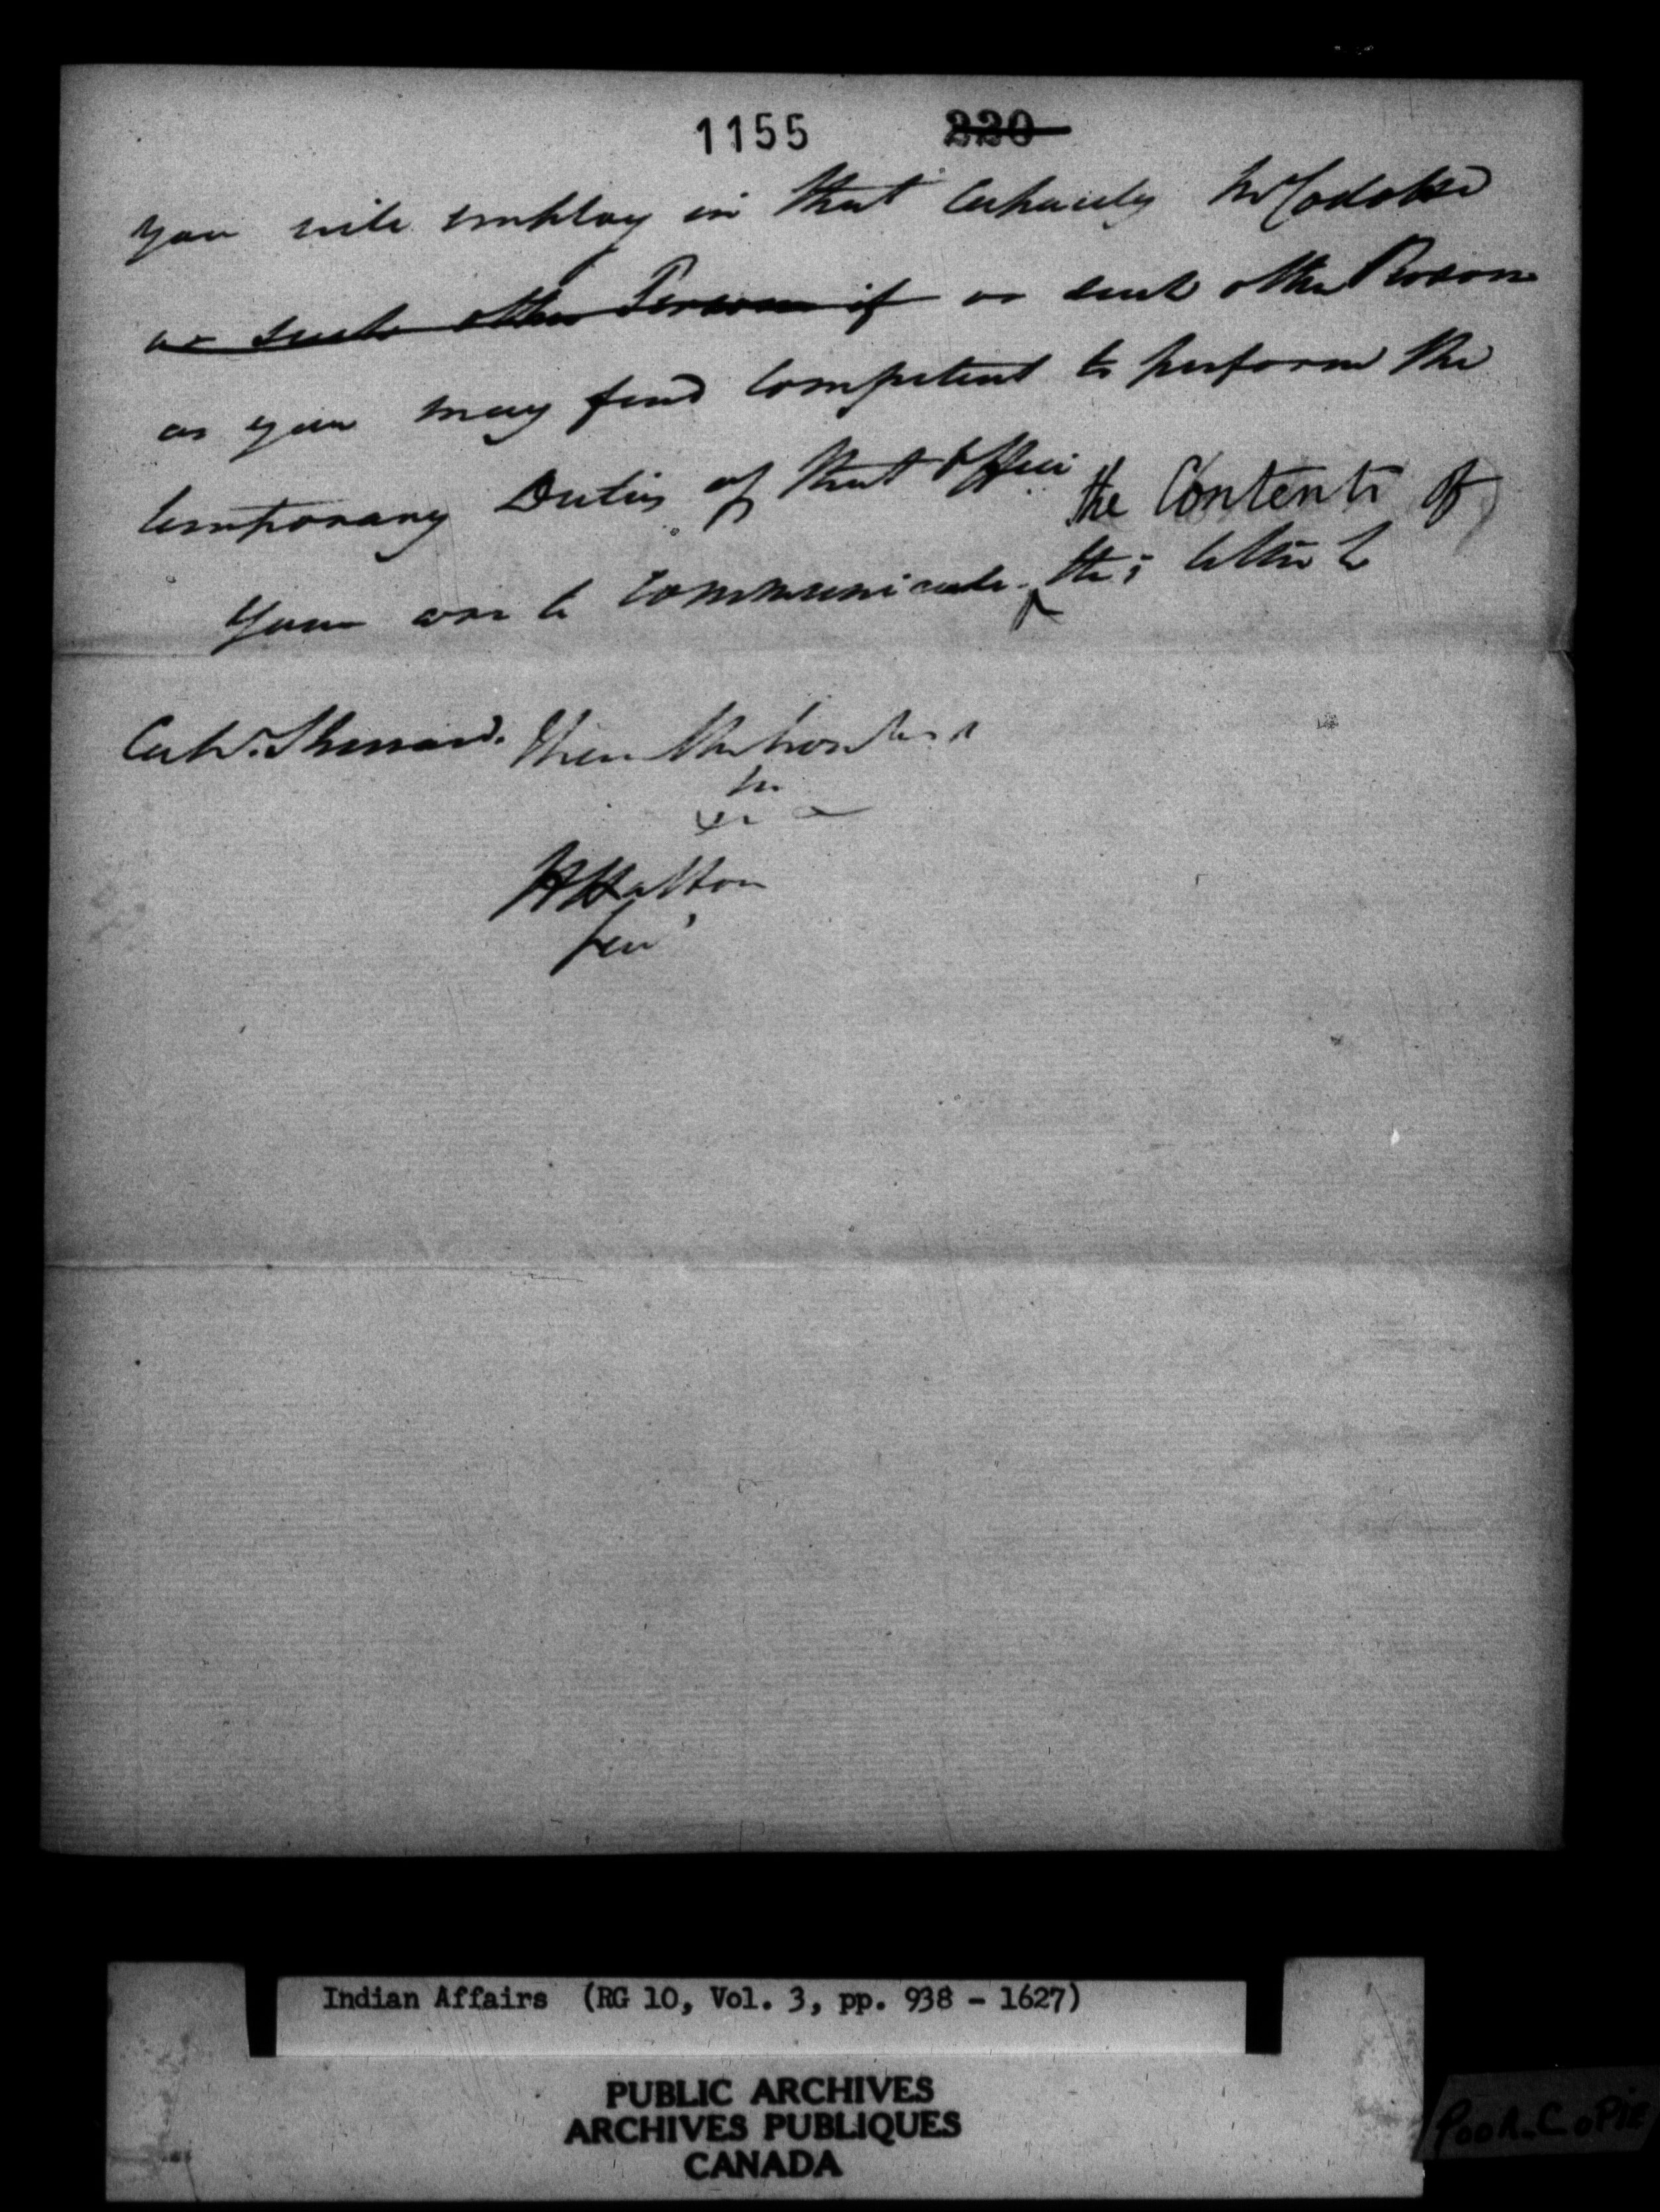 1155 220
you will employ in that Capacity Mr
or such other Person if or such other Person
as you may find Competent to perform the
temporary Duties of that Office
the Contents of
You are to Communicate this letter to
Capt. 
J Halton
Secy
Indian Affairs (RG 10, Vol. 3, pp. 938 - 1627)
PUBLIC ARCHIVES
ARCHIVES PUBLIQUES
CANADA
POOR COPIE